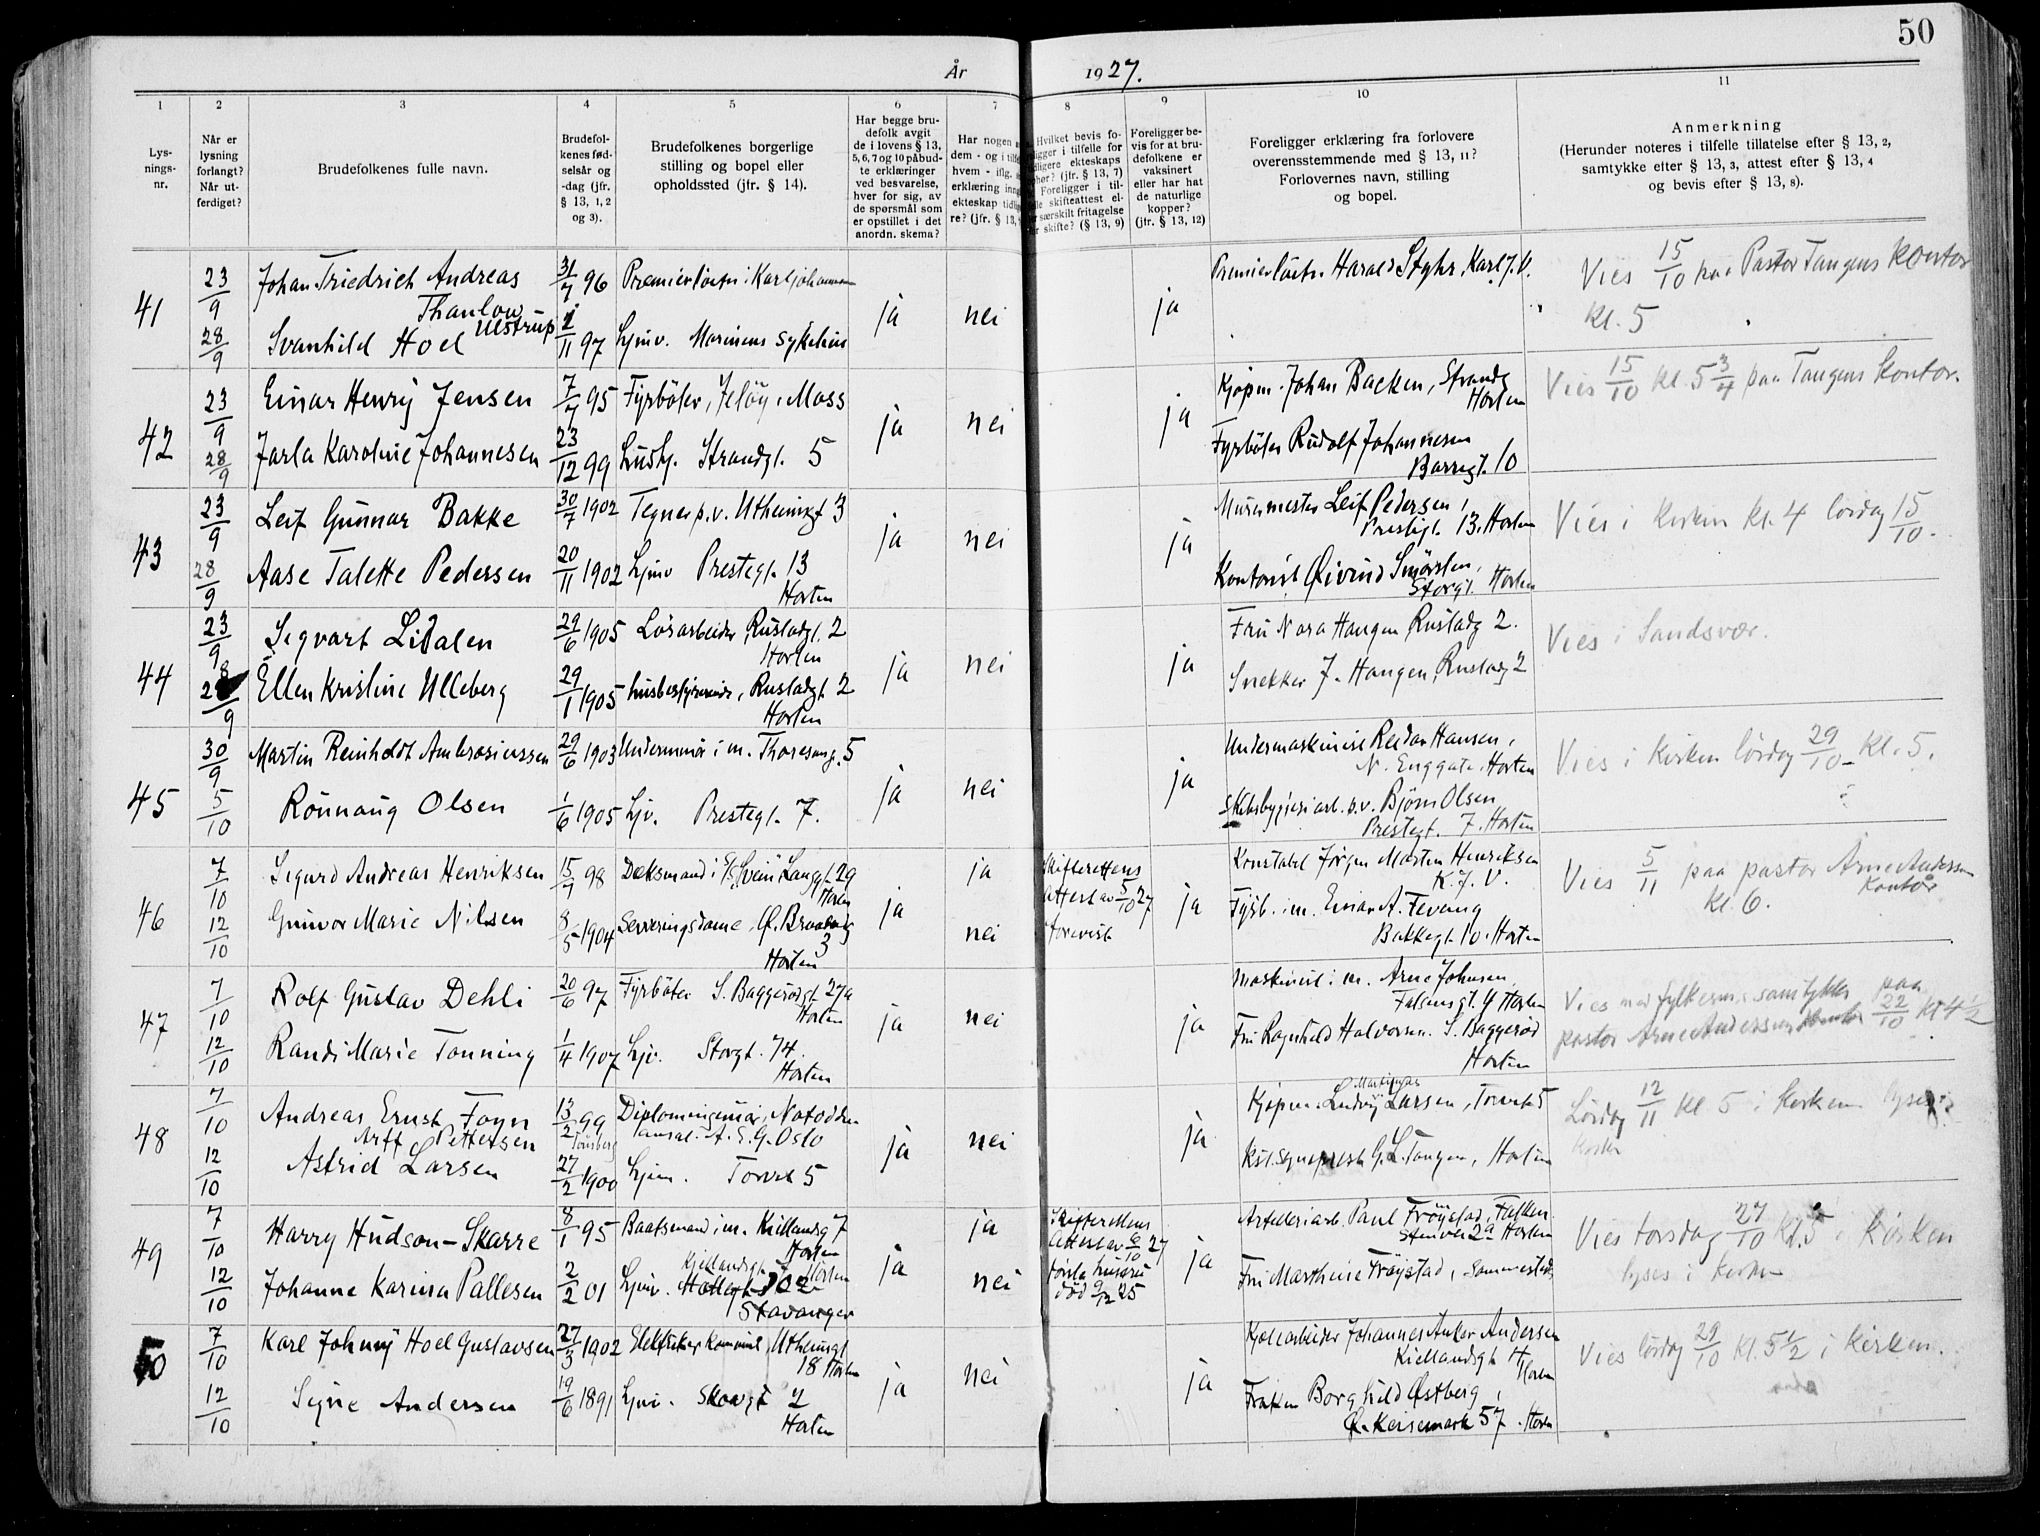 50
År 1927.
1 2 3 4 5 6 7 8 9 10 11
Lysningsnr.
Når er lysning forlangt? Når utferdiget?
Brudefolkenes fulle navn.
Brudefolkenes fødselsår og -dag (jfr. § 13, 1, 2 og 3).
Brudefolkenes borgerlige stilling og bopel eller opholdssted (jfr. § 14).
Har begge brudefolk avgit de i lovens § 13, 5, 6, 7 og 10 påbudte erklæringer ved besvarelse, hver for sig, av de spørsmål som er opstillet i det anordn. skema?
Har nogen
dem - og i
hvem - iflg.
erklæring
ekteskap
re? (jfr. § 13,
Hvilket bevis fo-
ligger i tilfelle for
ekteskaps
(jfr. § 13, 7)
Foreligger i til-
skifteattest el-
særskilt fritagelse
skifte? (§ 13, 9)
Foreligger bevis for at brudefolkene er vaksinert eller har hat de naturlige kopper? (jfr. § 13, 12)
Foreligger erklæring fra forlovere overensstemmende med § 13, 11? Forlovernes navn, stilling og bopel.
Anmerkning
(Herunder noteres i tilfelle tillatelse efter § 13, 2,
samtykke efter § 13, 3, attest efter § 13, 4
og bevis efter § 13, 8).
41 23/9 Johan Friedrich Andreas Thaulow Ulstrup 31/7 96 Premierløitn i Karljohansvern ja nei ja Premierløitn. Harald Styhr, Karl J. V. Vies 15/10 paa Pastor Tangens kontor
28/9 Svanhild Hoel 1/11 97 Hjmv. Marinens sykehus kl. 5
42 23/9 Einar Henry Jensen 7/7 95 Fyrbøter, Jeløy, Moss ja nei ja Kjøpm. Johan Backen, Strandg Horten Vies 15/10 kl. 5 3/4 paa Tangens kontor.
28/9 Jarla Karoline Johannesen 23/12 99 Hush. Strandgt. 5 Fyrbøter Rudolf Johannesen
43 23/9 Leif Gunnar Bakke 30/7 1902 Tegner p.v. 3 ja nei ja Murermester Leif Pedersen, Prestegt. 13. Horten Vies i kirken kl. 4 lørdag 15/10.
28/9 Aase Talette Pedersen 20/11 1902 Hjmv Prestegt. 13 Horten Kontorist Øivind Storgt. Horten
44 23/9 Sigvart Lidalen 29/6 1905 Løsarbeider Rustadgt. 2 Horten ja nei ja Fru Nora Haugen Rustadg 2. Vies i Sandsvær.
28/9 Ellen Kristine Ulleberg 29/1 1905 husbestyrerinde, Rustadgt. 2 Horten Snekker J. Haugen, Rustadg 2
45 30/9 Martin Reinholdt Ambrosiussen 29/6 1903 Underminør i m. Thoresensg. 5 ja nei ja Undermaskinist Reidar Hansen, N. Enggate. Horten Vies i kirken lørdag 29/10 kl. 5.
5/10 Rønnaug Olsen 1/6 1905 Hjv. Prestegt. 7. Skibsbyggeriarb. p.v. Bjørn Olsen Prestegt. 7. Horten
46 7/10 Sigurd Andreas Henriksen 15/7 98 Dæksmand i S/S "Svein" Langgt. 29 Horten ja ja Skifterettens attest av 5/10 27 forevist ja Konstabel Jørgen Morten Henriksen K. J. V. Vies 5/11 paa pastor Arne Andersens kontor
12/10 Gunvor Marie Nilsen 8/5 1904 Serveringsdame, Ø. 3 Horten nei Fyrb. i m. Einar A. Fevang Bakkegt. 10. Horten kl. 6.
47 7/10 Rolf Gustav Dehli 20/6 97 Fyrbøter S. Baggerødgt 27a Horten ja nei ja Maskinist i m. Arne Johnsen, Falsensgt. 4 Horten Vies med fylkesm.s samtykke paa
12/10 Randi Marie Tonning 1/4 1907 Hjv. Storgt. 74. Horten Fru Ragnhild Halvorsen. S. Baggerød Horten pastor Arne Andersens kontor 22/10 kl 4 1/2
48 7/10 Andreas Ernst Foyn Arff Pettersen 13/2 99 Tønsberg Diplomingeniør, Notodden ansat. A. E. G. Oslo ja nei ja Kjøpm. Ludvig Martinius Larsen, Torvet 5 Lørdag 12/11 kl 5 i kirken lyses i kirken
12/10 Astrid Larsen 27/2 1900 Hjm. Torvet 5 Res. sogneprest G. L. Tangen, Horten
49 7/10 Harry Hudson-Skarre 8/1 95 Baatsmand i m. Kiellandsg 7 Horten ja ja Skifterettens attest av 6/10 27 første hustru død 9/12 25 ja Artilleriarb. Paul Frøystad, Horten Vies torsdag 27/10 kl. 5 i kirken
12/10 Johanne Karina Pallesen 2/2 01 Hjmv. Kjellandsgt. 7 Horten Stavanger nei Fru Marthine Frøystad, lyses i kirken
50 7/10 Karl Johnny Hoel Gustavsen 27/3 1902 Elektriker 18 Horten ja nei ja Kjelearbeider Johannes Anker Andersen Kiellandsgt. 4 Horten Vies lørdag 29/10 kl. 5 1/2 i kirken.
12/10 Signe Andersen 19/6 1891 Hjmv. Skovgt 2 Horten Frøken Borghild Østberg, Ø. Keisemark 57. Horten